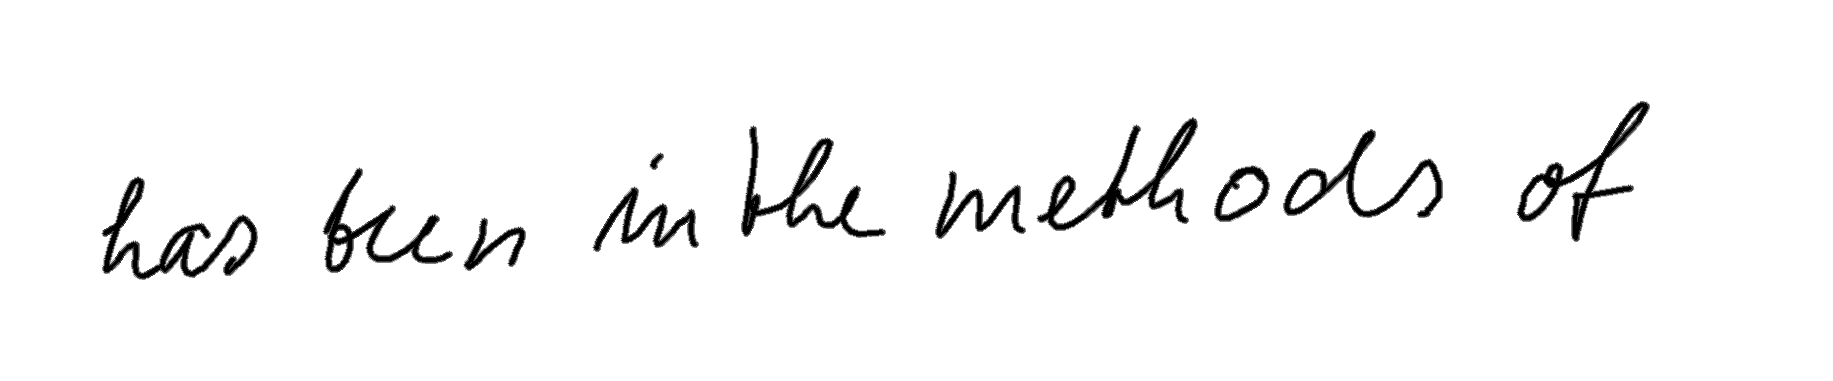 has been in the methods of